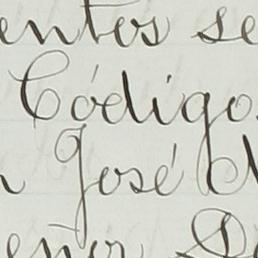 entos se
Código.
n José M
enor De